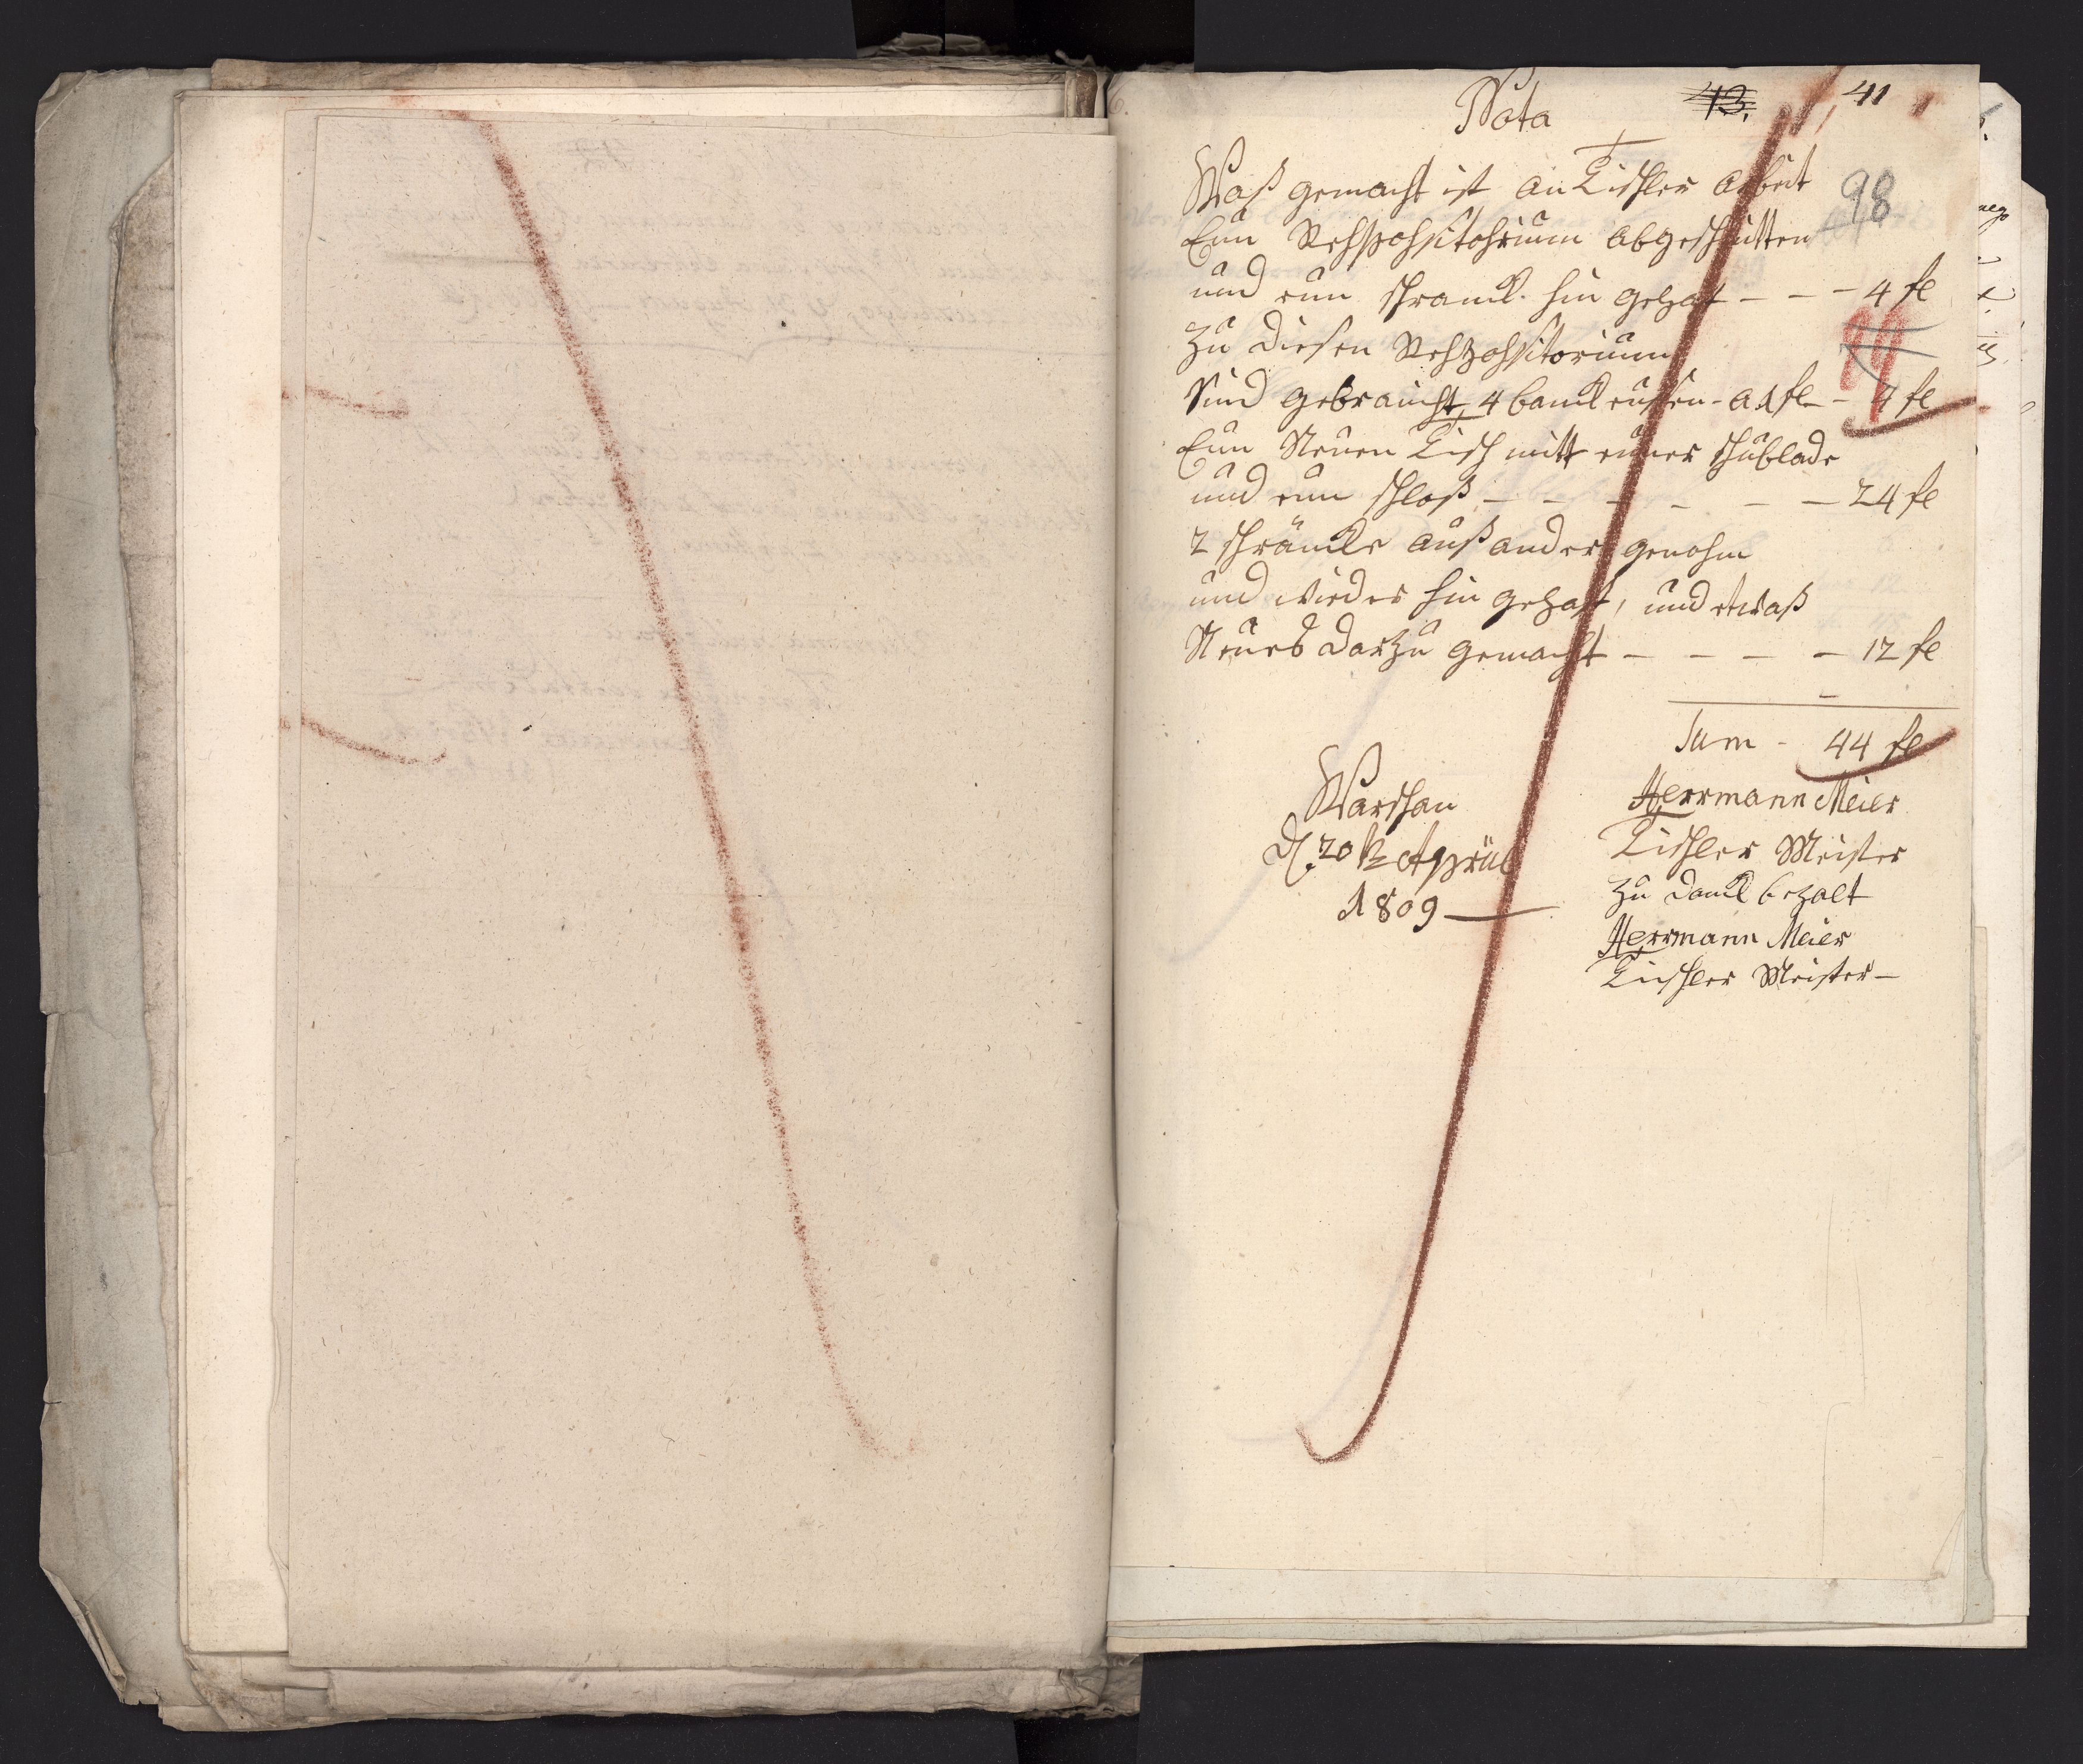 Nota
43.
41
Waß gemacht ist an Tischler arbeit
98
Eun Rehpohsitohrium abgeschnitten
und eun schranck hin gehat – – – 4 fl
zu diesen Rehpohsitorium
99
Sind gebraucht 4 banck eussen – a 1 fl – 4 fl
Eun Neuen Tisch mitt einer schublade
und eun schloß – – – – – – 24 fl
2 schräncke auß ander genohm
und wieder hin gehat, und etwaß
Neues darzu gemacht – – – – 12 fl
Sum – 44 fl
Warschau
d. 20 te Aprül
1809
Herrmann Meier
Tischler Meister
zu danck bezalt
Herrmann Meier
Tischler Meister –